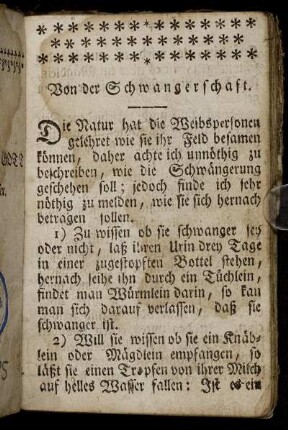 Von der Schwangerschaft.
Die Natur hat die Weibspersonen
gelehret wie sie ihr Feld besamen
können, daher achte ich unnöthig zu
beschreiben, wie die Schwängerung
geschehen soll; jedoch finde ich sehr
nöthig zu melden, wie sie sich hernach
betragen sollen.
1) Zu wissen ob sie schwanger sey
oder nicht, laß ihren Urin drey Tage
in einer zugestopften Bottel stehen,
hernach seihe ihn durch ein Tüchlein,
findet man Würmlein darin, so kan
man sich darauf verlassen, daß sie
schwanger ist.
2) Will sie wissen ob sie ein Knäb-
lein oder Mägdlein empfangen, so
läßt sie einen Tropfen von ihrer Milch
auf helles Wasser fallen: Ist es ein